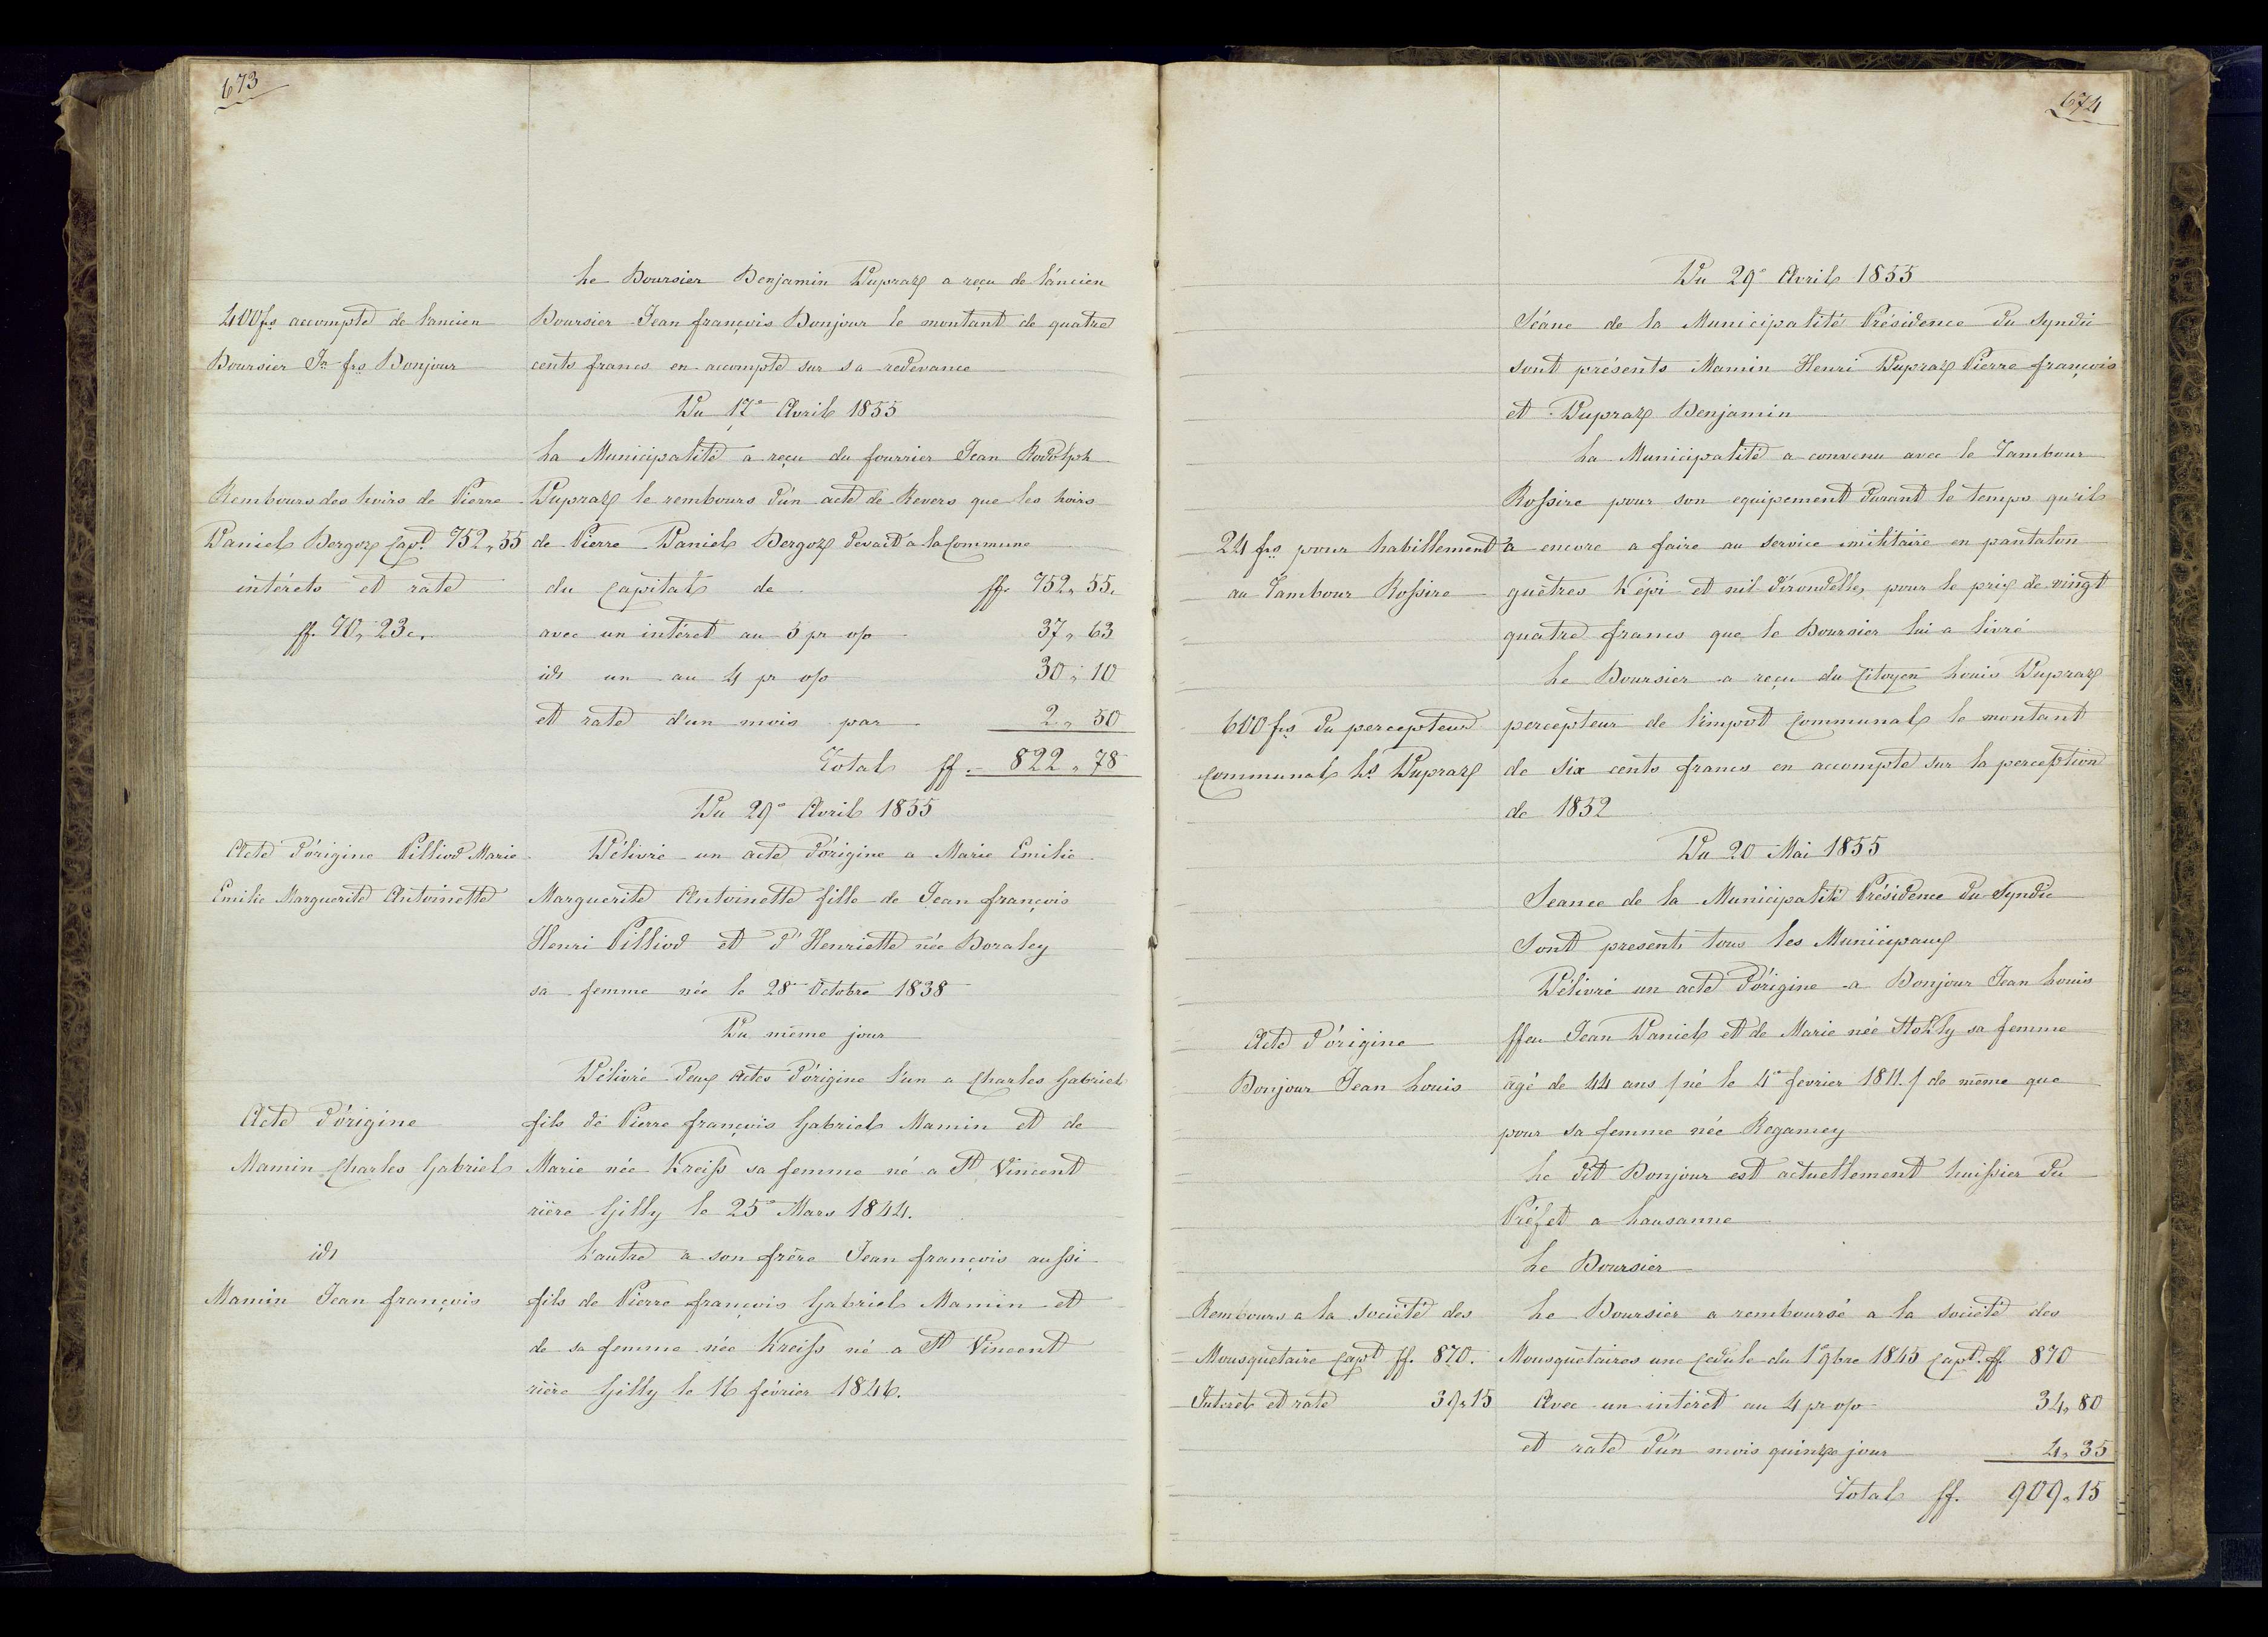 673
Le Boursier Benjamin Dupraz a reçu de l'ancien
400 frs accompte de l'ancien
Boursier Jn frs Bonjour
Boursier Jean françois Bonjour le montant de quatre
cents francs en accompte sur sa redevance
Du 17e Avril 1855
La Municipalité a reçu du fourrier Jean Rodolph
Rembours des hoirs de Pierre
Daniel Bergoz Capt. 752,,55
intérets et rate
ff. 70,,23c.
Dupraz le rembours d'un acte de Revers que les hoirs
de Pierre Daniel Bergoz devait à la Commune
du Capital de ff. 752,,55.
avec un intéret au 5 pr o/o 37,,63
id un au 4 pr o/o 30,,10
et rate d'un mois par 2,,50
Total ff. 822,,78
Du 29e Avril 1855
Acte d'origine Pilliod Marie
Emilie Marguerite Antoinette
Délivré un acte d'origine a Marie Emilie
Marguerite Antoinette fille de Jean françois
Henri Pilliod et d'Henriette née Boraley
sa femme née le 28e Octobre 1838
Du même jour
Délivré deux Actes d'origine l'un a Charles Gabriel
Acte d'origine
Mamin Charles Gabriel
fils de Pierre françois Gabriel Mamin et de
Marie née Kreiss sa femme né a St Vincent
rière Gilly le 25e Mars 1844.
id
Mamin Jean françois
L'autre à son frère Jean françois aussi
fils de Pierre françois Gabriel Mamin et
de sa femme née Kreiss né a St Vincent
rière Gilly le 16 février 1846.
674
Du 29e Avril 1855
Séanc de la Municipalité Présidence du Syndic
sont présents Mamin Henri Dupraz Pierre françois
et Dupraz Benjamin
La Municipalité a convenu avec le Tambour
Rossire pour son equipement durant le temps qu'il
24 frs pour habillement
au Tambour Rossire
a encore a faire au service militaire en pantalon
guêtres Képi et nil d'irondelle, pour le prix de vingt
quatre francs que le Boursier lui a livré
Le Boursier a reçu du Citoyen Louis Dupraz
600 frs du percepteur
Communal Ls Dupraz
percepteur de l'impot Communal le montant
de six cents francs en accompte sur la perception
de 1852
Du 20 Mai 1855
Seance de la Municipalité Présidence du Syndic
Sont present tous les Municipaux
Délivré un acte d'origine a Bonjour Jean Louis
Acte d'origine
Bonjour Jean Louis
ffeu Jean Daniel et de Marie née Stokly sa femme
agé de 44 ans / né le 4e fevrier 1811. / de même que
pour sa femme née Regamey
Le dit Bonjour est actuellement huissier du
Préfet a Lausanne
Le Boursier
Rembours a la Société des
Mousquetaire Capt ff. 870.
Interet et rate 39,,15
Le Boursier a remboursé a la société des
Mousquetaires une Cedule du 1e 9bre 1845 Capt. ff. 870
Avec un intéret au 4 pr o/o 34,,80
et rate d'un mois quinze jour 4,,35
Total ff. 909,,15